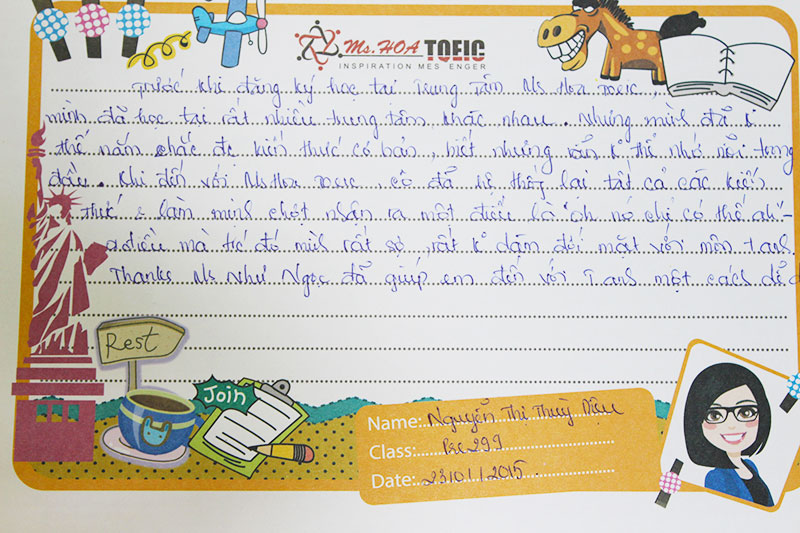 Ms. HOA TOEIC
INSPIRATION MES ENGER
Trước khi đăng ký học tại Trung tâm Ms Hoa TOEIC,
mình đã học tại rất nhiều trung tâm khác nhau. Nhưng mình đã k
thể nắm chắc đc kiến thức cơ bản, biết nhưng vẫn k thể nhớ nổi trong
đầu. Khi đến với Ms Hoa TOEIC cô đã hệ thống lại tất cả các kiến
thức & làm mình chợt nhận ra một điều là "oh nó chỉ có thể ah"
điều mà trc đó mình rất sợ, rất k dám đối mặt với môn T.anh.
Thanks Ms Như Ngọc đã giúp em đến với T.anh một cách dễ
Rest
Join
Name: Nguyễn Thị Thuỳ Diệu
Class: 299
Date: 23/01/2015